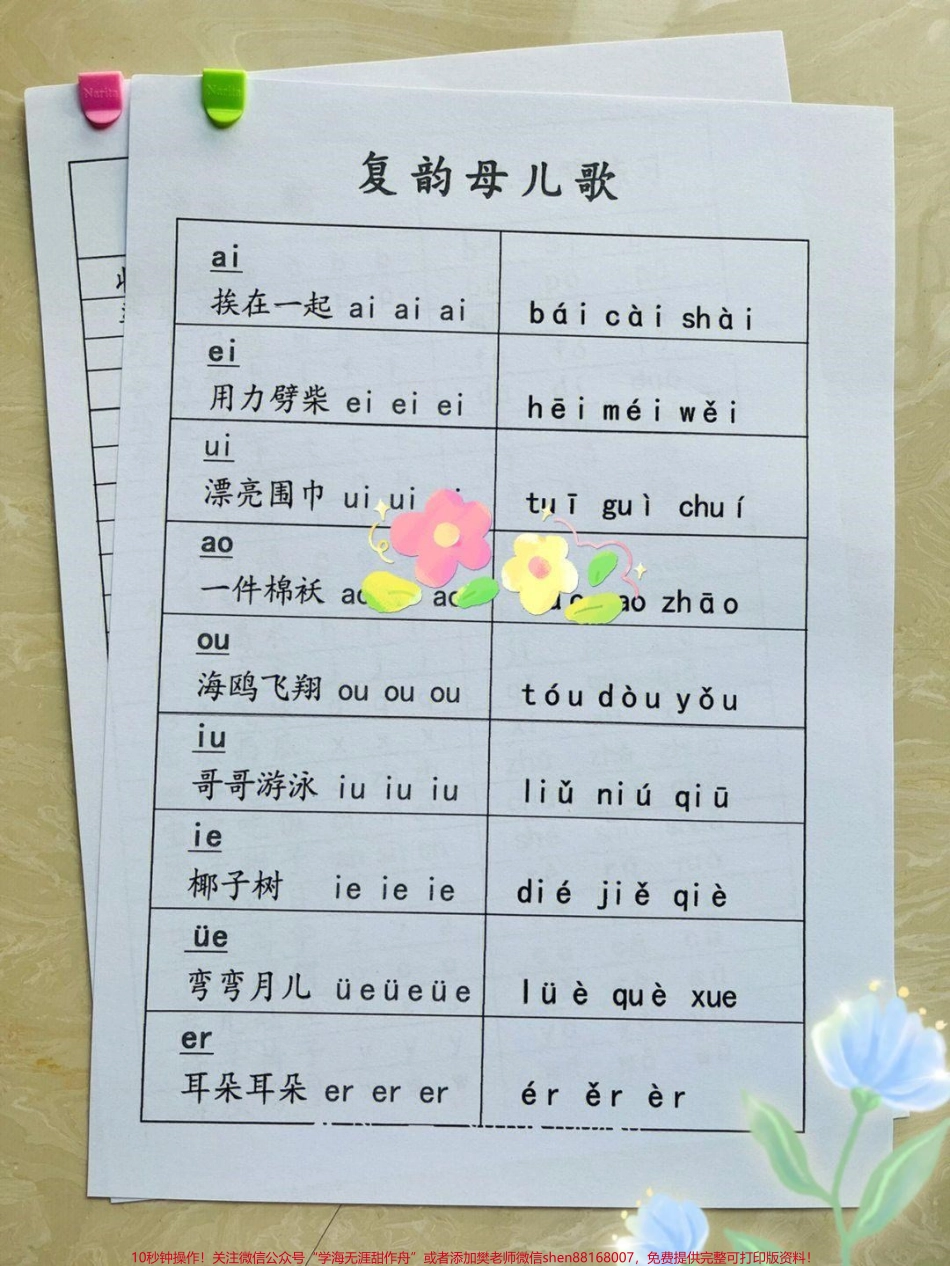 复韵母儿歌
ai
挨在一起 ai ai ai
bái cài shài
ei
用力劈柴 ei ei ei
hēi méi wěi
ui
漂亮围巾 ui ui
tuī guì chuí
ao
一件棉袄
zhāo
ou
海鸥飞翔 ou ou ou
tóu dòu yǒu
iu
哥哥游泳 iu iu iu
liǔ niú qiū
ie
椰子树 ie ie ie
dié jiě qiè
üe
弯弯月儿 üeüeüe
lüè què xue
er
耳朵耳朵 er er er
ér ěr èr
10秒钟操作！关注微信公众号“学海无涯甜作舟”或者添加樊老师微信shen88168007，免费提供完整可打印版资料！